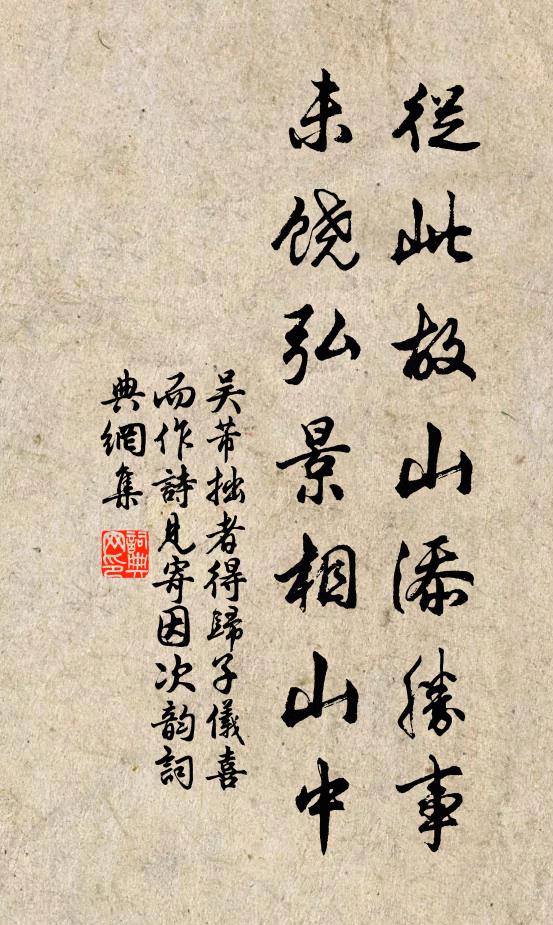 從此故山添勝事
未饒弘景相山中
吴芾拙者得歸子儀喜
而作詩見寄因次韵詞
典網集
詞典網印